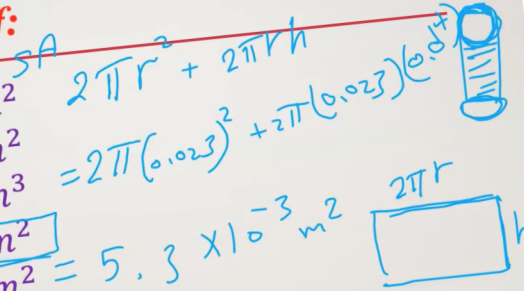 f:
SA
2πr² + 2πrh
= 2π(0.023)² + 2π(0.023)(0.
= 5.3 × 10⁻³ m²
2πr
h
²
²
³
²
m²